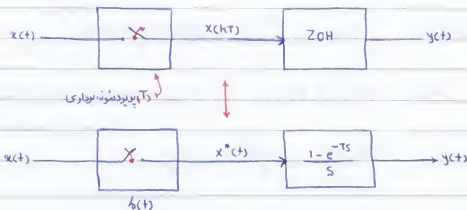 x(t) x(kT) ZOH y(t)
پریود نمونه برداری (T)
x(t) x*(t) 1 - e^-TS / S y(t)